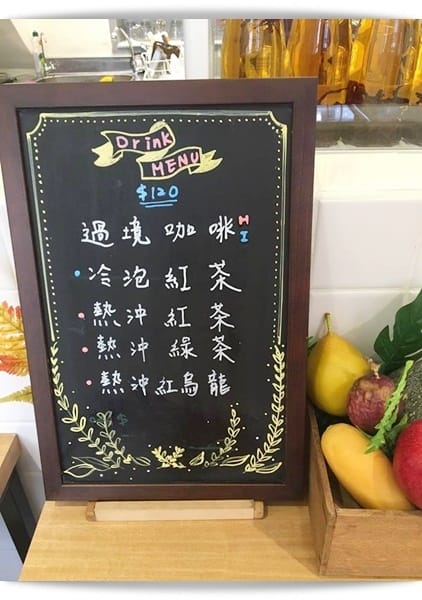 Drink
MENU
$120
過境咖啡 H I
冷泡紅茶
熱沖紅茶
熱沖綠茶
熱沖紅烏龍